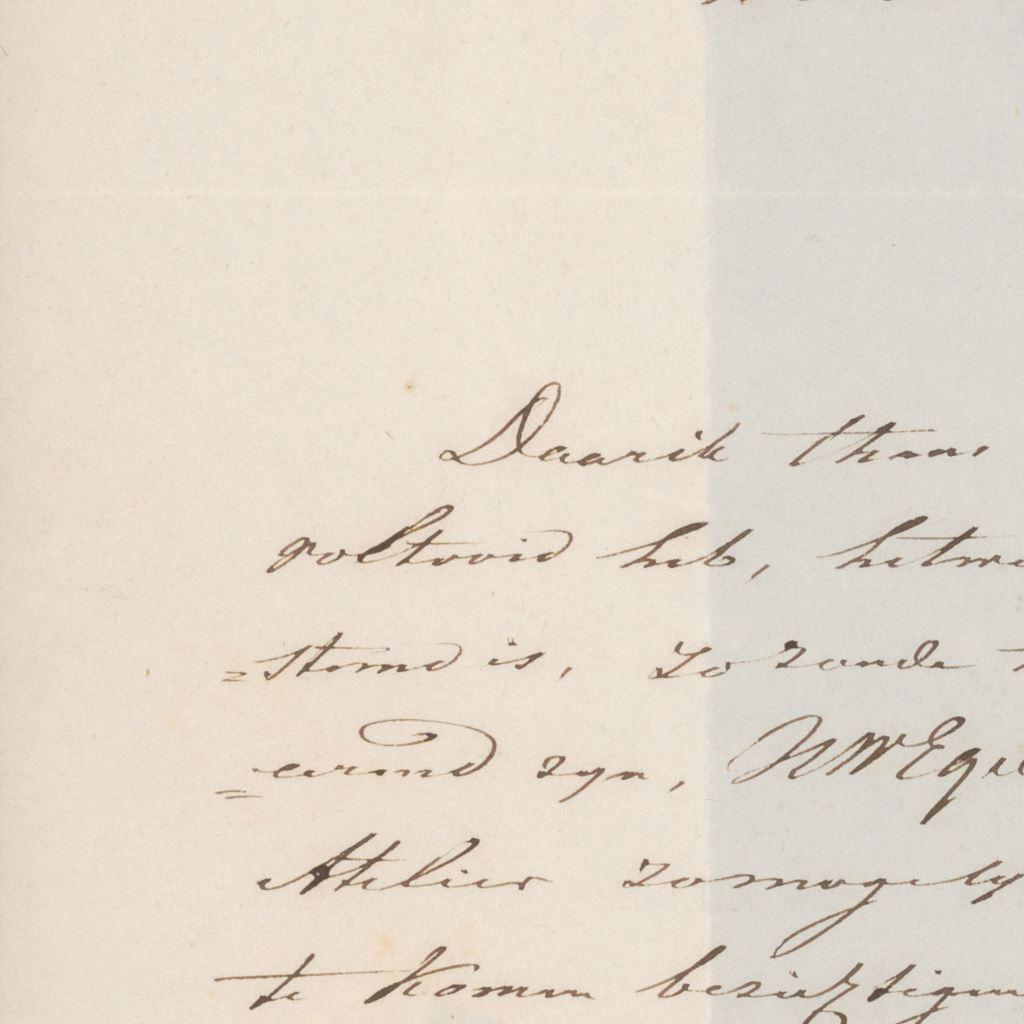 Daar ik thans
voltooid heb, het
=stemd is, zo zoude
=eerend zyn, UWEge
Atelier zo mogely
te komen bezigtigen